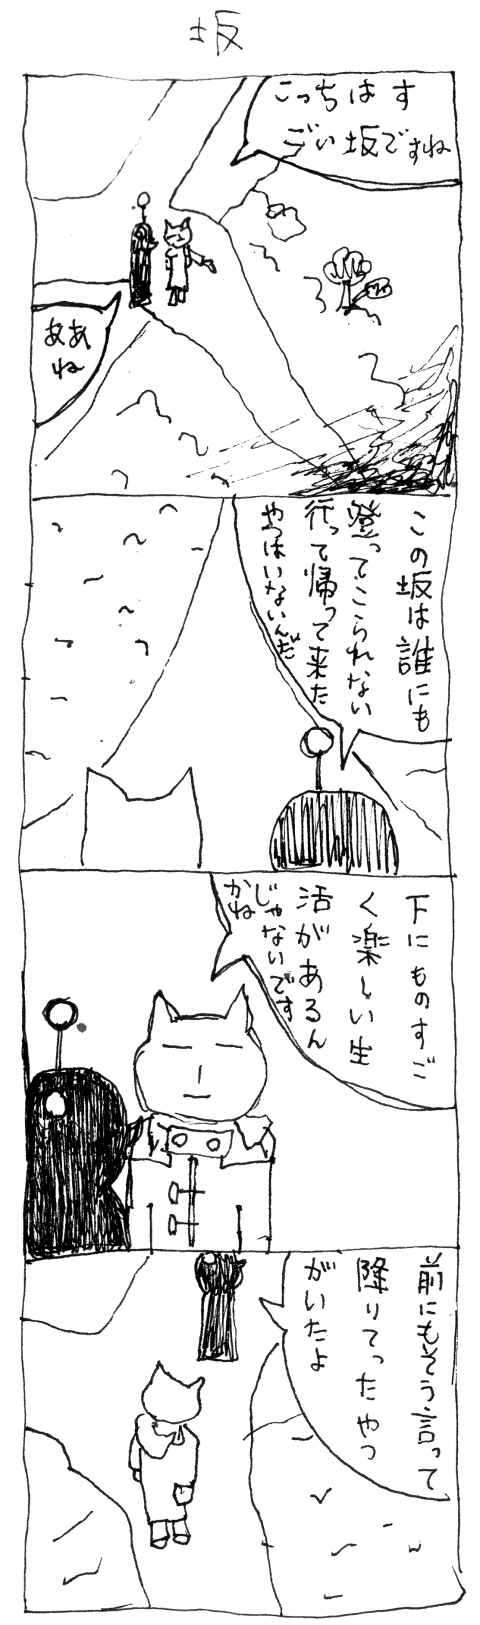 坂
こっちはす
ごい坂ですね
ああ
ね
この坂は誰にも
登ってこられない
行って帰って来た
やつはいないんだ
下にものすご
く楽しい生
活があるん
じゃないです
かね
前にもそう言って
降りてったやつ
がいたよ